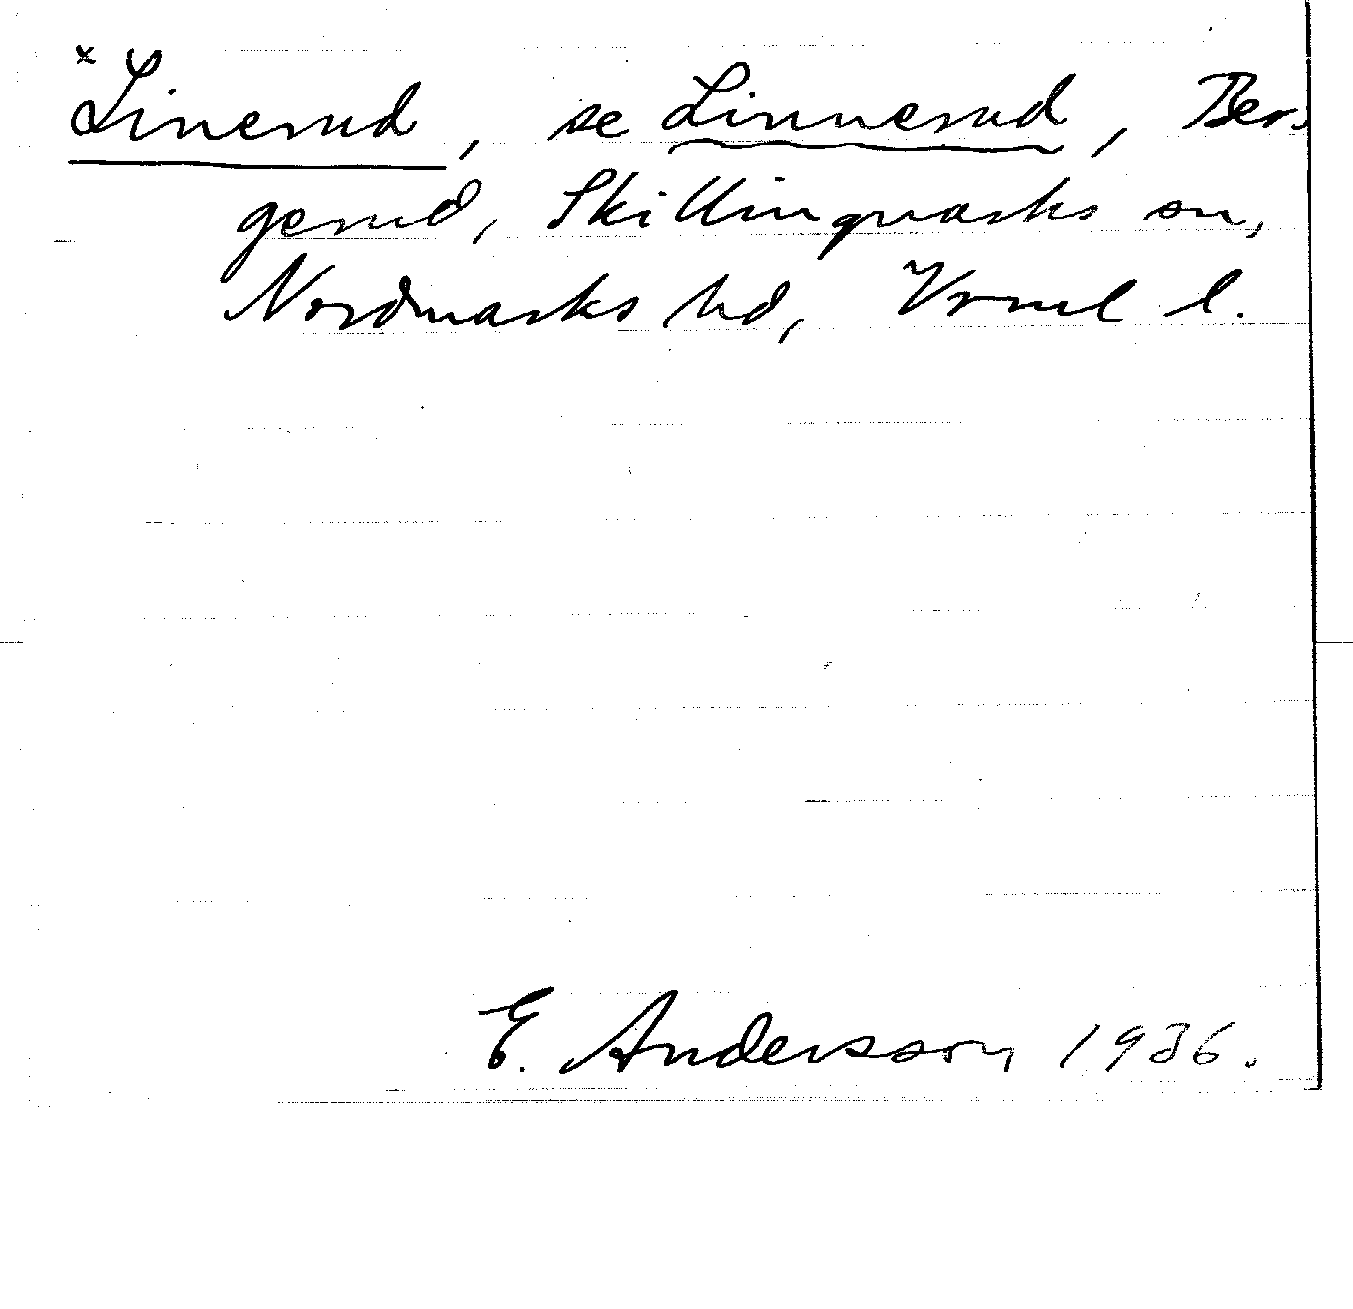 x Linerud, se Linnerud, Ber-
gerud, Skillingmarks sn,
Nordmarks hd, Vrml l.
E. Andersson 1936.